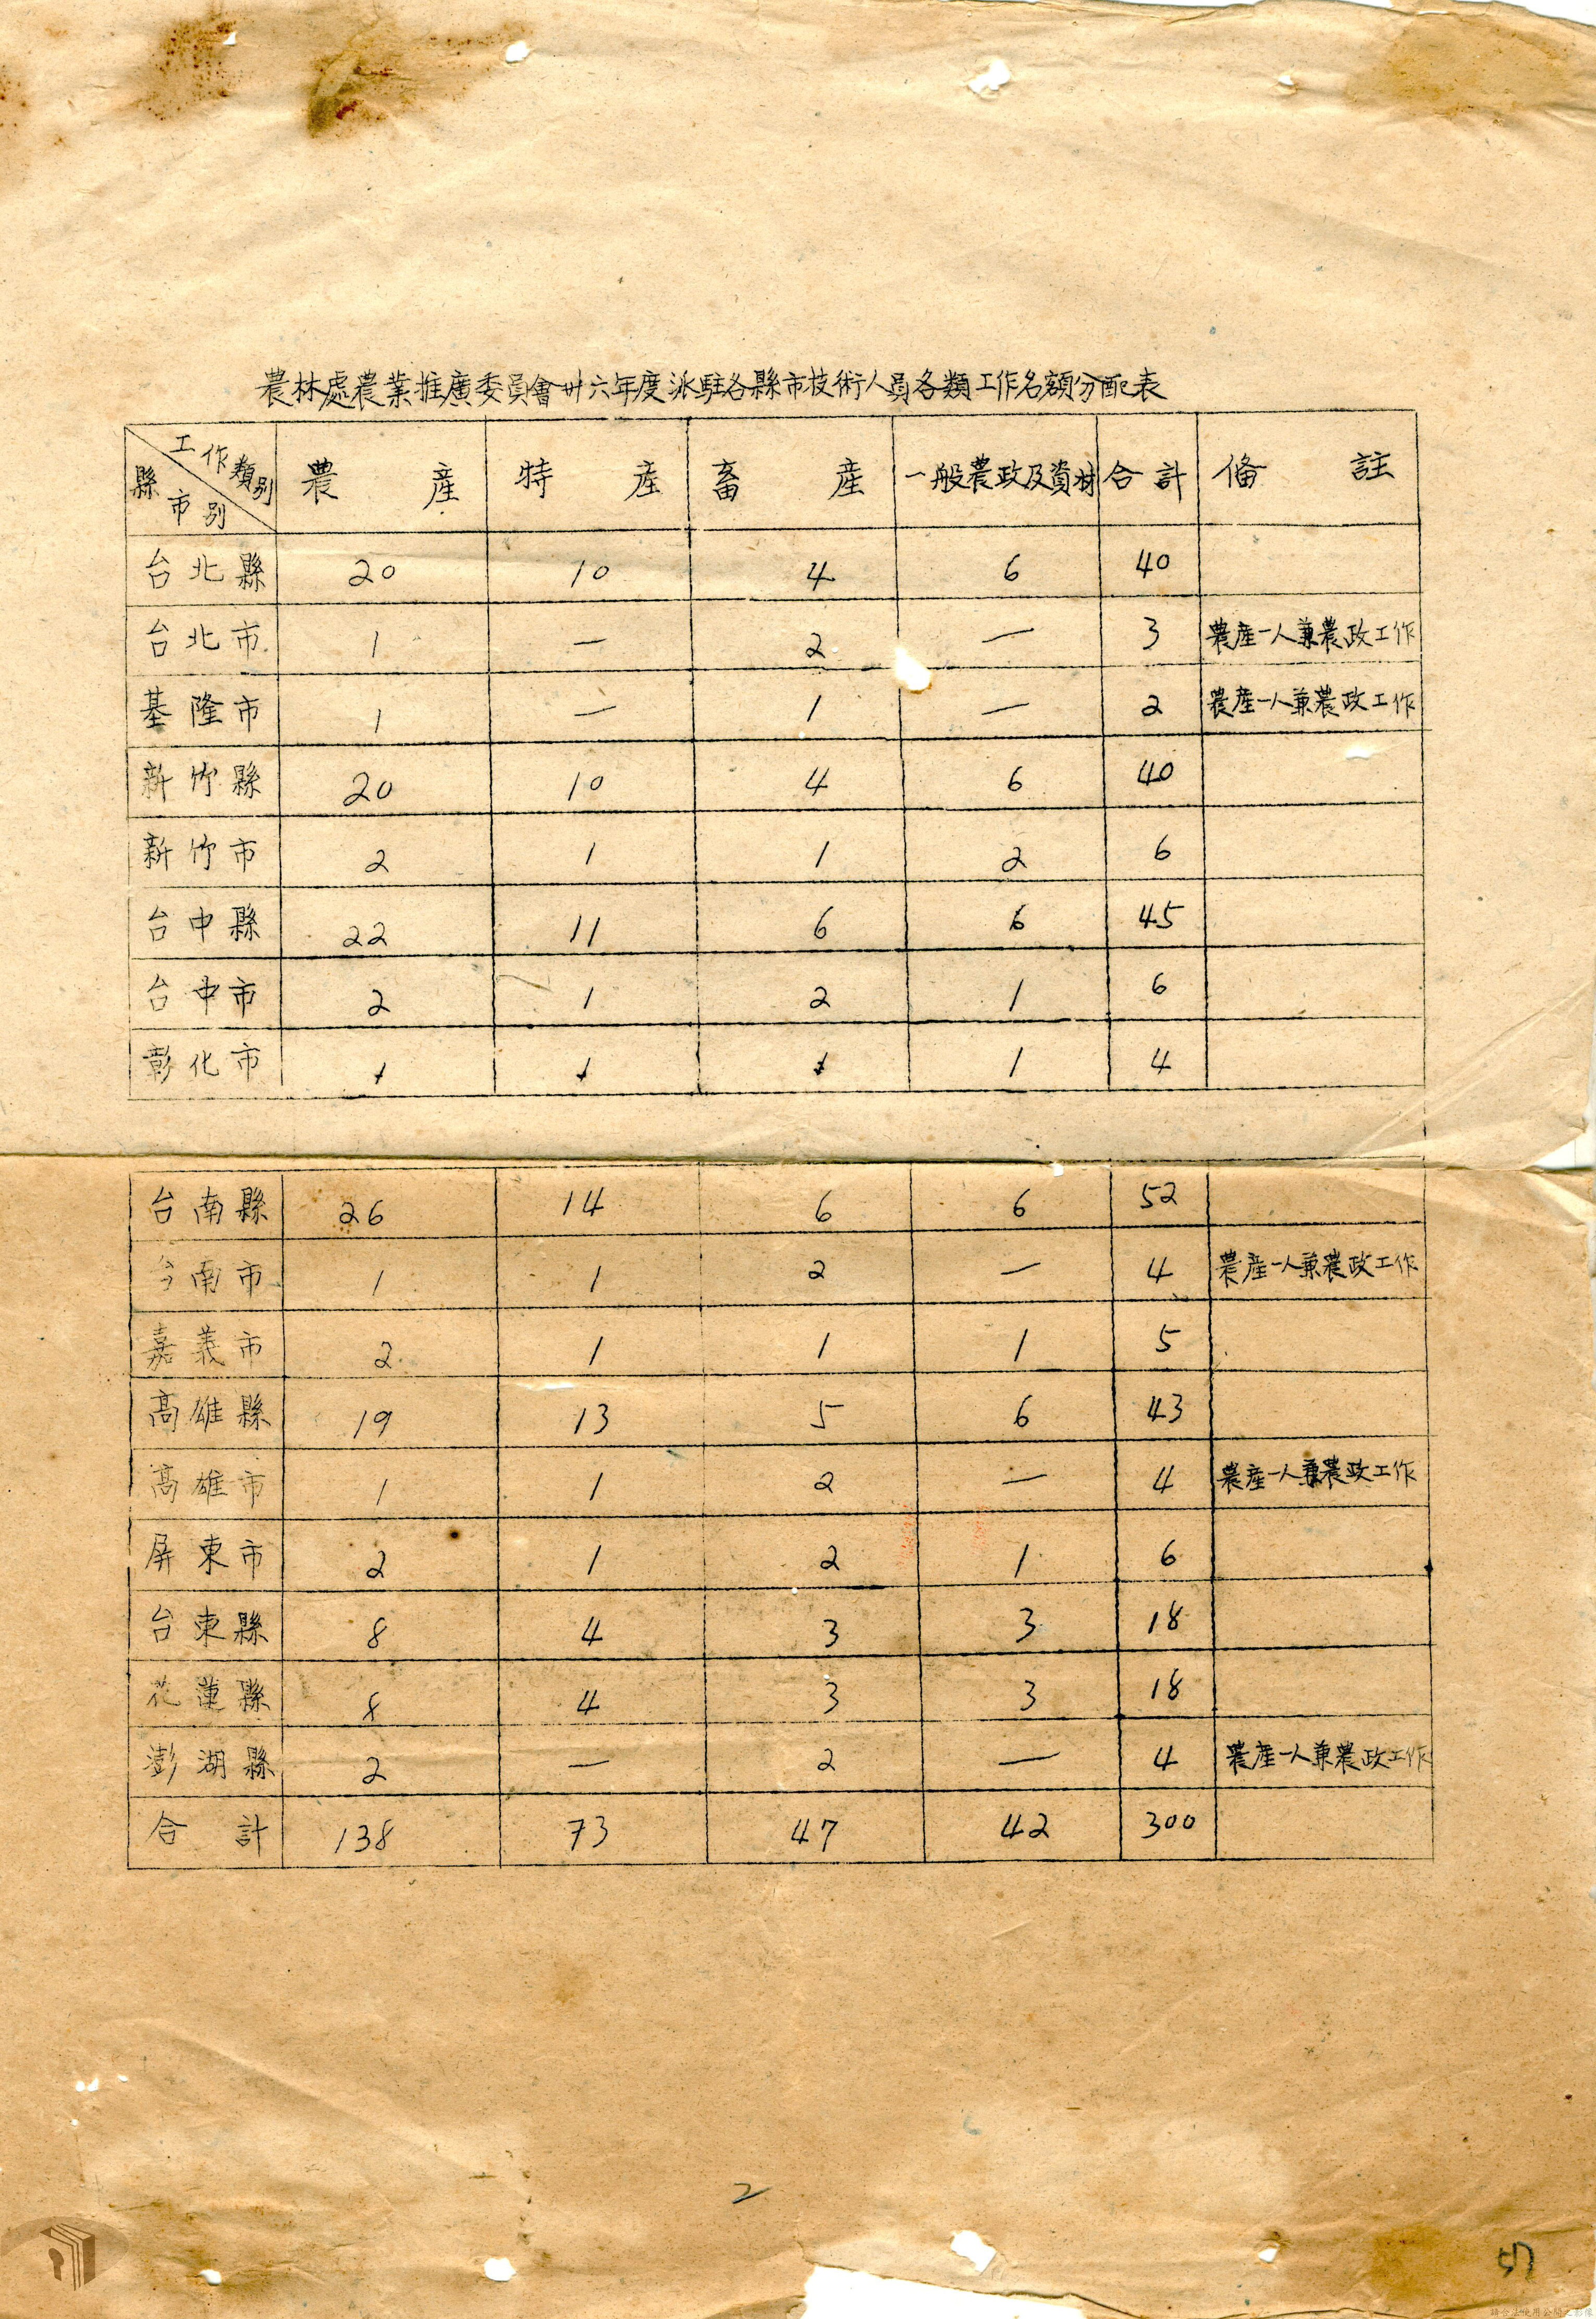 農林處農業推廣委員會卅六年度派駐各縣市技術人員各類工作名額分配表
工作類別 縣市別 農產 特產 畜產 一般農政及資材 合計 備註
台北縣 20 10 4 6 40
台北市 1 — 2 — 3 農產一人兼農政工作
基隆市 1 — 1 — 2 農產一人兼農政工作
新竹縣 20 10 4 6 40
新竹市 2 1 1 2 6
台中縣 22 11 6 6 45
台中市 2 1 2 1 6
彰化市 1 1 1 1 4
台南縣 26 14 6 6 52
台南市 1 1 2 — 4 農產一人兼農政工作
嘉義市 2 1 1 1 5
高雄縣 19 13 5 6 43
高雄市 1 1 2 — 4 農產一人兼農政工作
屏東市 2 1 2 1 6
台東縣 8 4 3 3 18
花蓮縣 8 4 3 3 18
澎湖縣 2 — 2 — 4 農產一人兼農政工作
合計 138 73 47 42 300
2